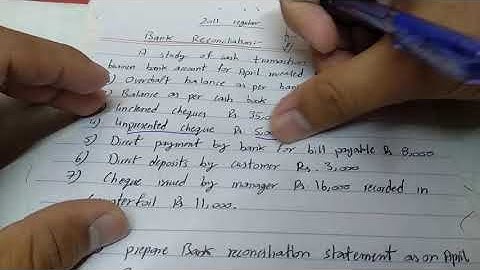 2011 regular
Bank Reconciliation:-
A study of cash transaction
bank account for April revealed
Overdraft balance as per bank
Balance as per cash book
Uncleared cheques Rs 35,0
4) Unpresented cheque Rs 5,00
5) Direct payment by bank for bill payable Rs 8,000
6) Direct deposits by customer Rs. 3,000
7) Cheque issued by manager Rs 16,000 recorded in
Rs 11,000.
prepare Bank reconciliation statement as on April